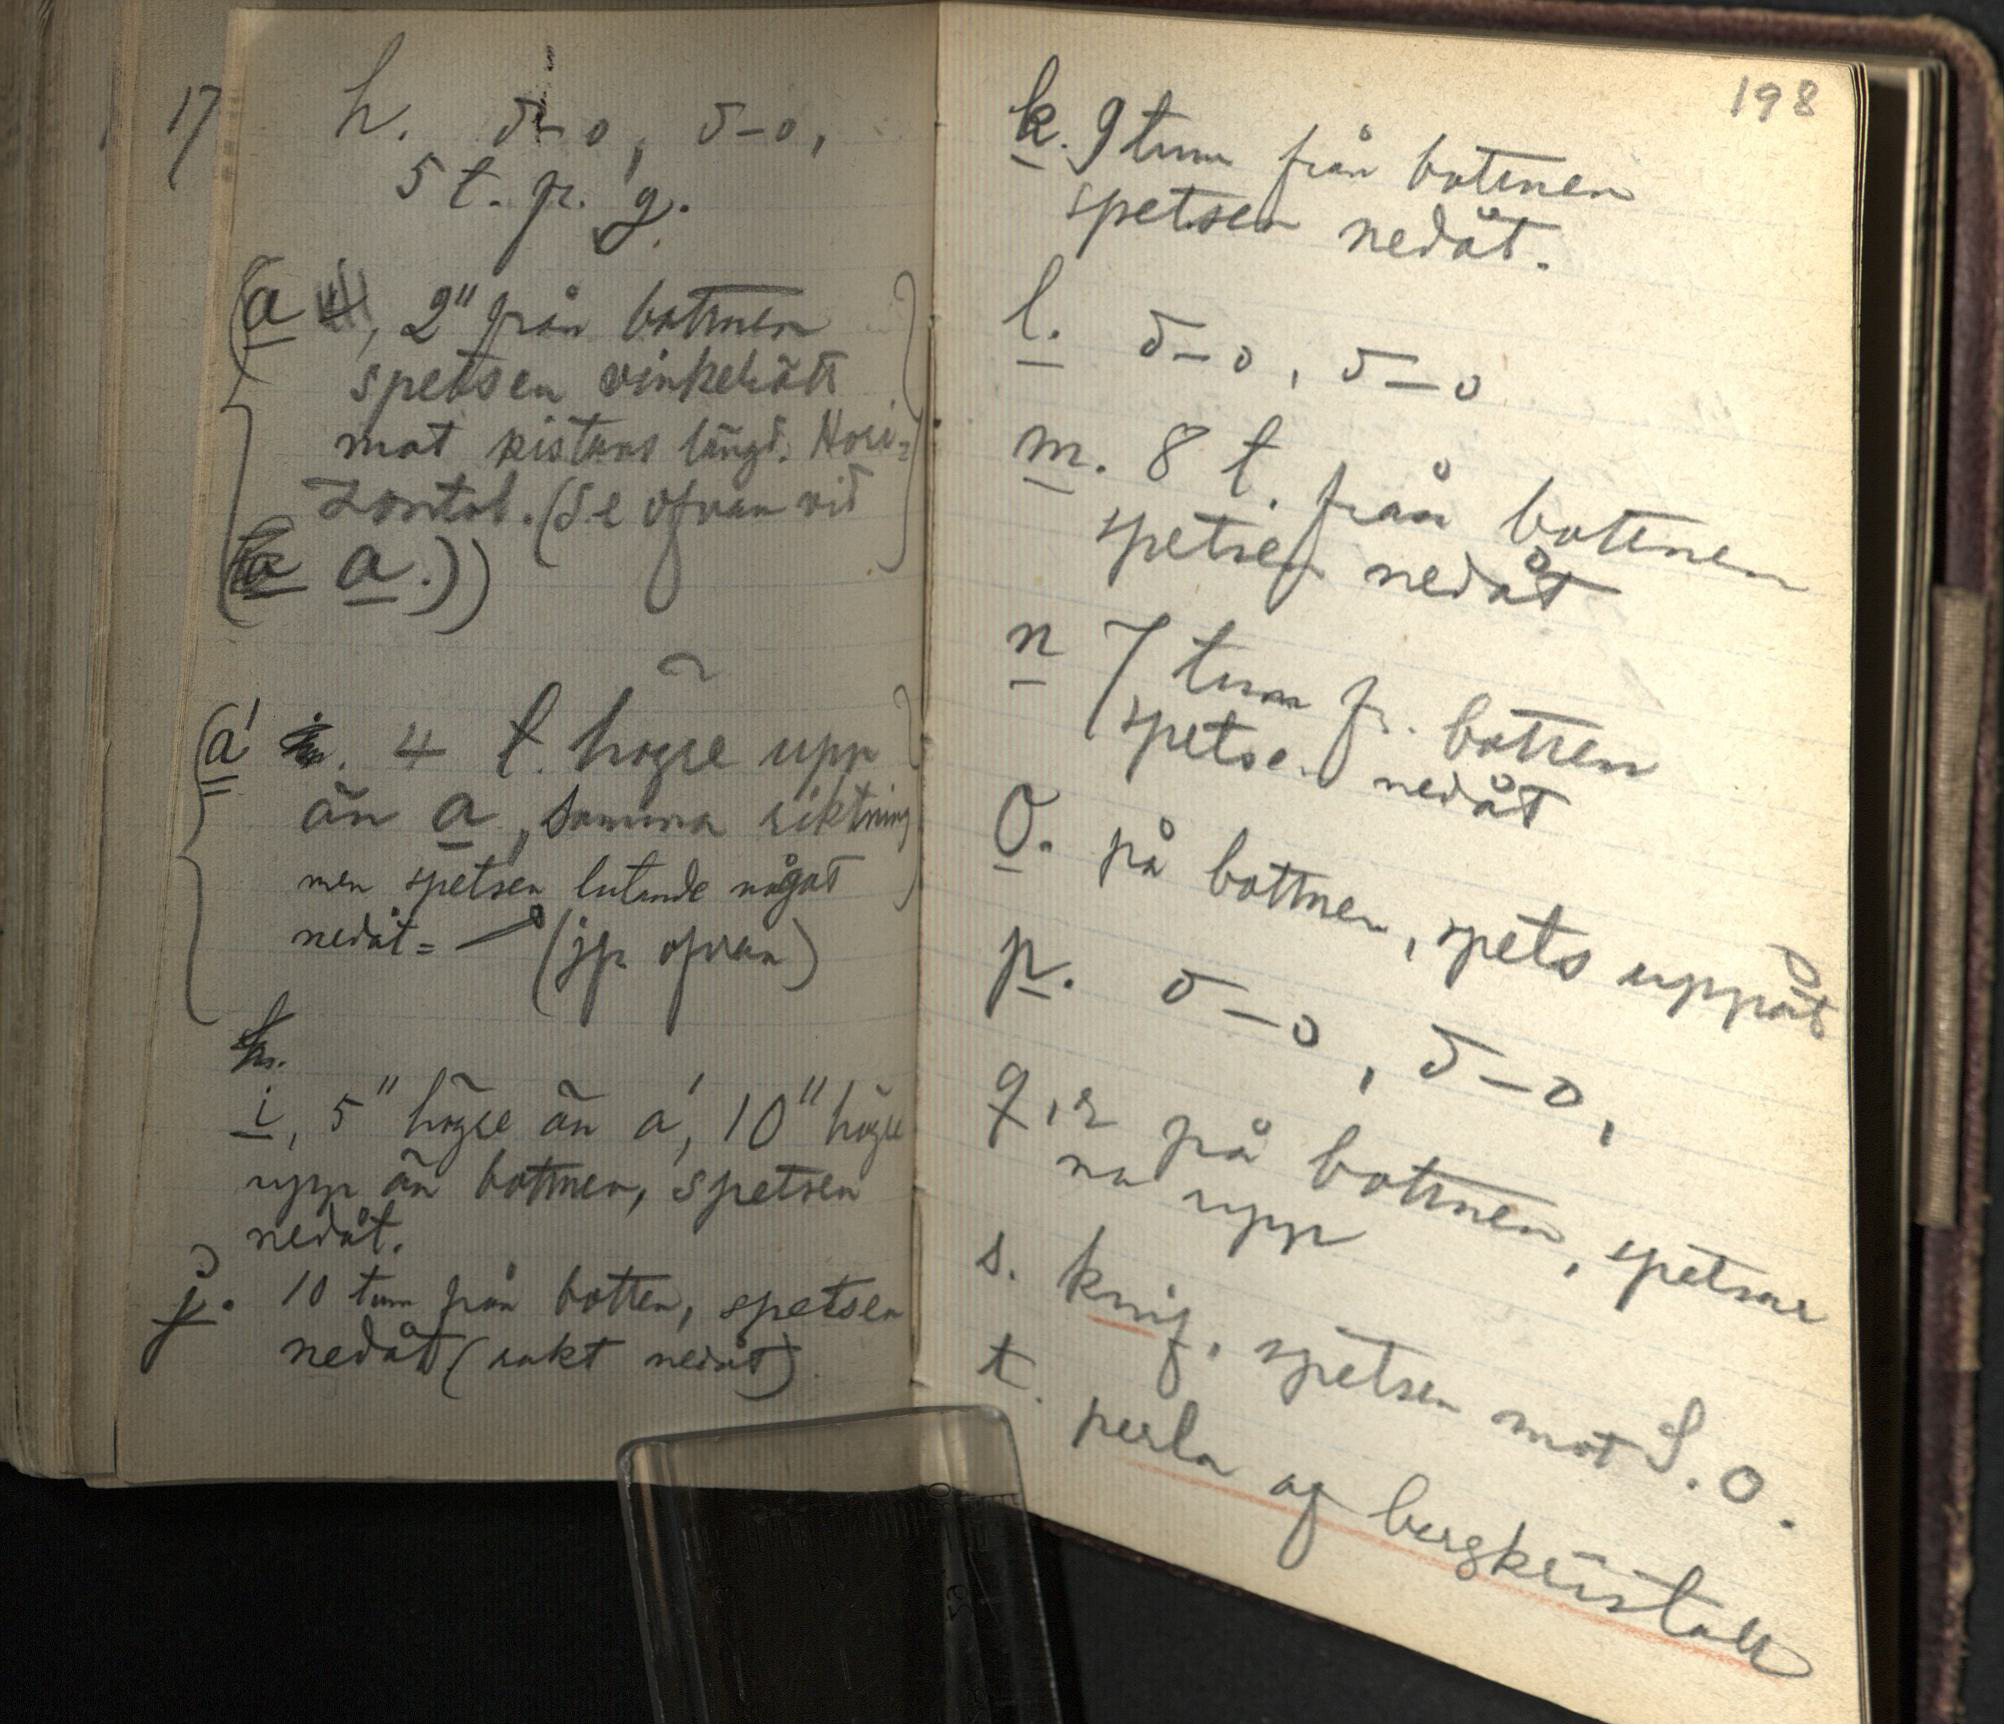 17
h. ō–o, ō–o,
5 t. fr. g.
(a, 2" från bottnen
spetsen vinkelrätt
mot kistans längd. Hori=
zontal. (Se ofvan vid
a.))
(a' . 4 t. högre upp
än a, samma riktning
men spetsen lutande något
nedåt = (jfr ofvan)
i, 5" högre än a', 10" högre
upp än bottnen, spetsen
nedåt.
j. 10 tum från botten, spetsen
nedåt (rakt nedåt)
198
k. 9 tum från bottnen
spetsen nedåt.
l. ō–o, ō–o
m. 8 t. från bottnen
spetsen nedåt
n 7 tum fr. botten
spetsen nedåt
o. på bottnen, spets uppåt
p. ō–o, ō–o,
q, r på bottnen, spetsar
na upp
s. knif, spetsen mot S.O.
t. perla af bergkristall